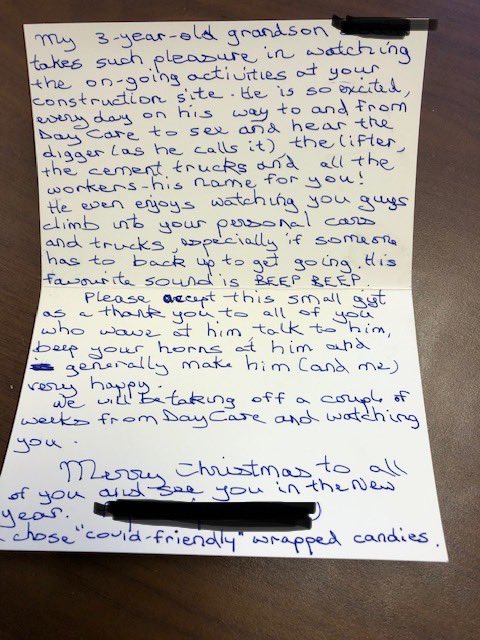 My 3-year-old grandson
takes such pleasure in watching
the on-going activities at your
construction site. He is so excited,
every day on his way to and from
DayCare to see and hear the
digger (as he calls it) the lifter,
the cement trucks and all the
workers-his name for you!
He even enjoys watching you guys
climb into your personal cars
and trucks, especially if someone
has to back up to get going. His
favourite sound is BEEP BEEP.
Please accept this small gift
as a thank you to all of you
who wave at him talk to him,
beep your horns at him and
generally make him (and me)
very happy.
We will be taking off a couple of
weeks from DayCare and watching
you.
Merry Christmas to all
of you and see you in the New
year.
chose "covid-friendly" wrapped candies.